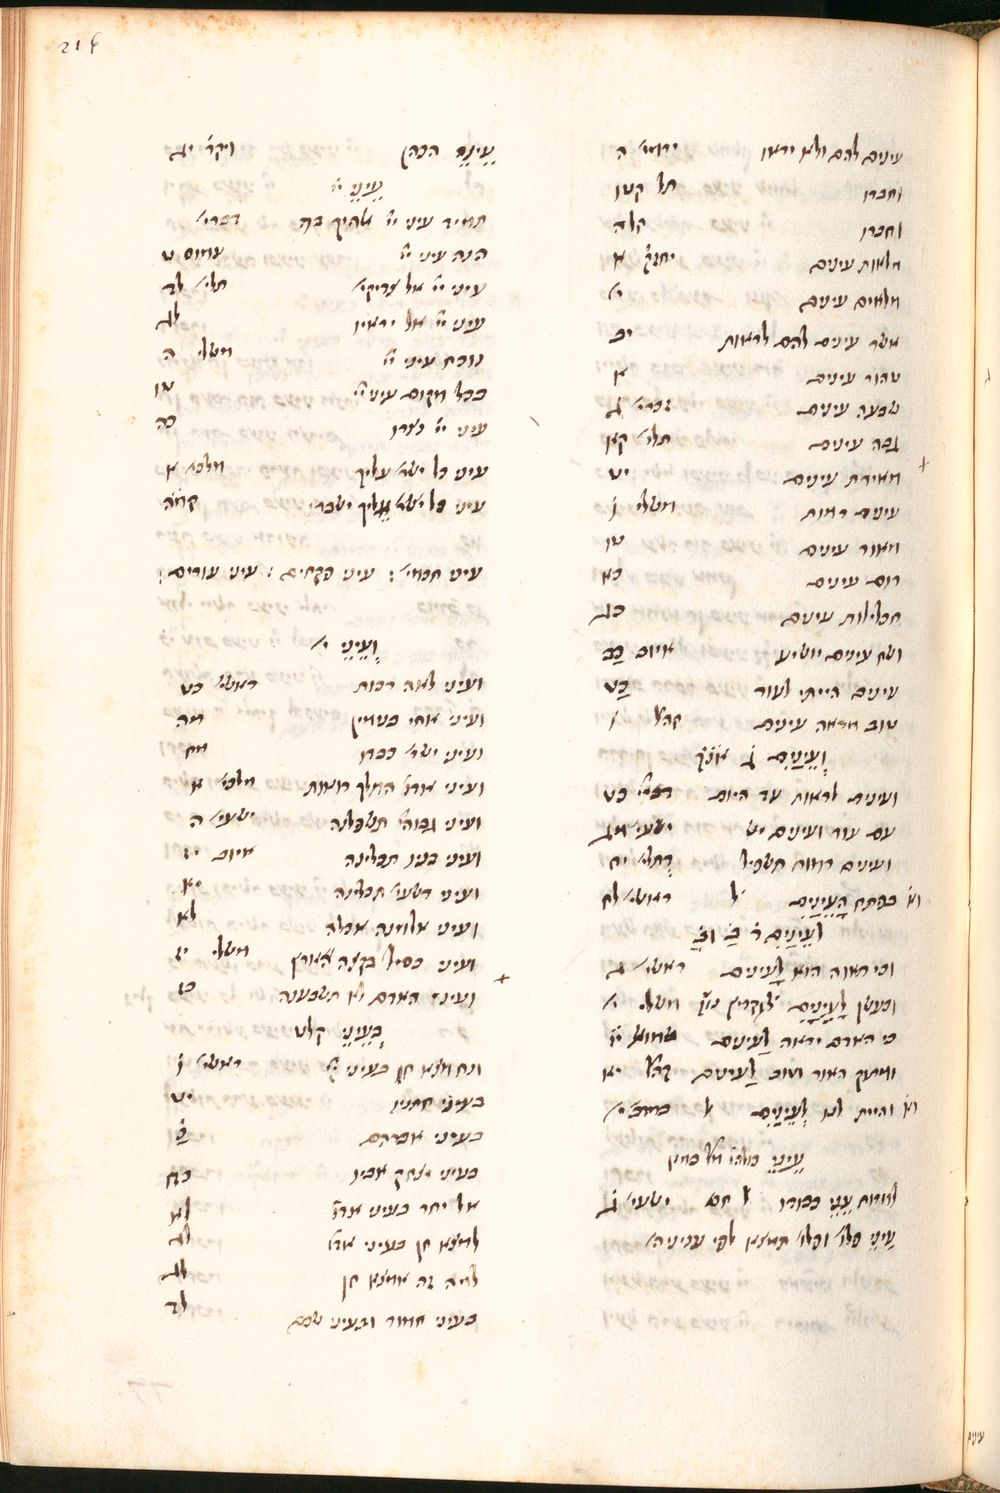 עינים להם ולא יראו ירמי׳ ה
וחברו תל׳ קטו
וחברו קלה
מלאות עינים יחזק׳ א
מלאים עינים י׳
אשר עינים להם לראות יב
טהור עינים א
שבעה עינים זכרי׳ ג
גבה עינים תלי׳ קא
מאירת עינים יט
עינים רמות משלי ו
מאור עינים טו
רום עינים כא
חכלילות עינים כג
ושח עינים יושיע איוב כב
עינים הייתי לעור כט
טוב מראה עינים קהל׳ ו
וְעֵינַיִם ג׳
ועינים לראות עד היום דברי׳ כט
עם עור ועינים יש ישעי׳ מג
ועינים רמות תשפיל תלי׳ יח
בפתח הָעֵינַיִם ל׳ ראשי׳ לח
לָעֵינַיִם ד׳
וכי תאוה הוא לָעינים ראשי׳ ג
וכעשן לָעֵינָיִם משלי י׳
כי האדם יראה לַעינים שמוא׳
ומתוק האור וטוב לַעינים קהל׳ יא
והיית לנו לְעֵינָיִם ל׳ במדב׳ י׳
עֵינֵי
למרות עֵנֵי כבודו ל׳ חס׳ ישעי׳ ג
עֵינֵי תמצא לפי עניניה׳
עֵינֵי הכהן ויקר׳ יג
עֵינֵי יי׳
תמיד עיני יי׳ אלהיך בה דברי׳
הנה עיני יי׳ עמוס ט
עיני יי׳ אל צדיקי׳ תלי׳ לד
עיני יי׳ אל יראיו לג
נוכח עיני יי׳ משלי ה
בכל מקום עיני יי׳ טו
עיני יי׳ נצרו כב
עיני כל ישר׳ עליך מלכי׳ א
עיני כל אליך ישברו קמה
עיני חכמי׳ : עיני הפקחים : עיני עורים :
וְעֵינֵי י׳
ועיני לאה רכות ראשי׳ כט
ועיני אחי בנימין מה
ועיני ישר׳ כבדו מח
ועיני אדני המלך רואות מלכי׳ א
ועיני גבוהי׳ תשפלנה ישעי׳ ה
ועיני בניו תכלינה איוב יז
ועיני רשעי׳ תכלינה יא
ועיני אלמנה אכלה לא
ועיני כסיל בקצה הארץ משלי יז
ועיני האדם לא תשבענה כז
בְּעֵינֵי קלט
ונח מצא חן בעיני יי׳ ראשי׳ ו
בעיני חתניו יט
בעיני אברהם כ
בעיני יצחק אביו כח
אל יחר בעיני אדני לא
למצא חן בעיני אדני לג
למה זה אמצא חן לג
בעיני חמור ובעיני שכם לד